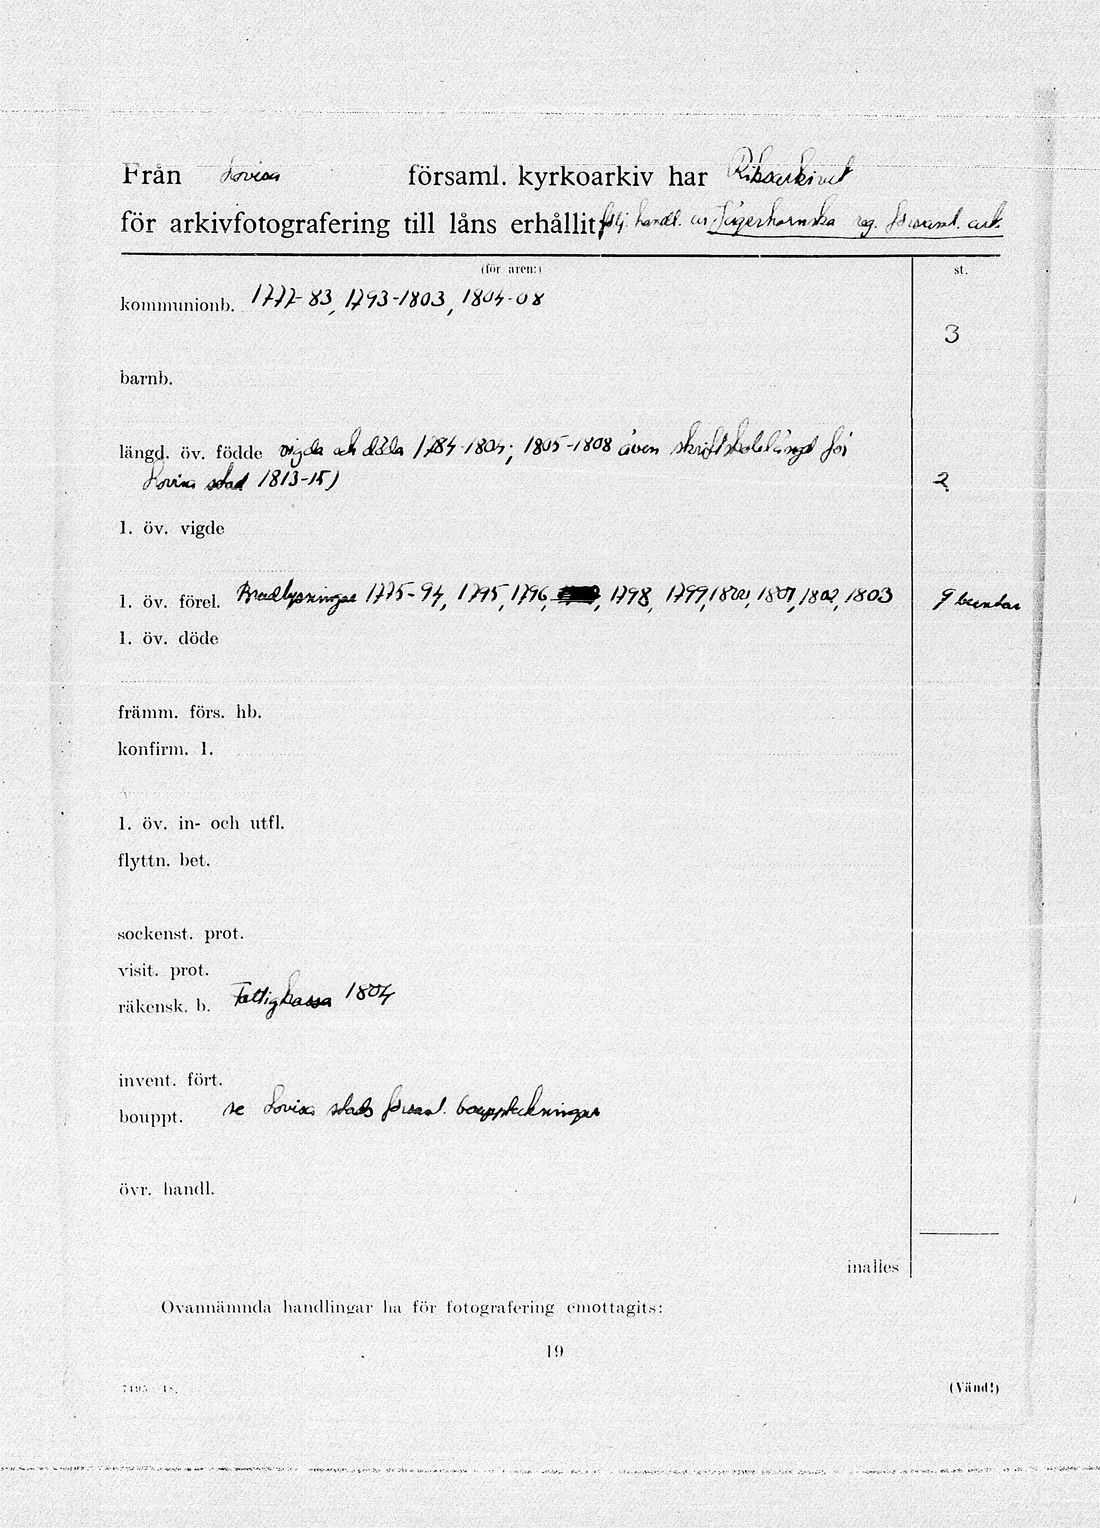 Från Lovisa församl. kyrkoarkiv har Riksarkivet
för arkivfotografering till låns erhållit följ. handl. ur Jägerhornska reg. församl. ark.
(för åren:) st.
kommunionb. 1777-83, 1793-1803, 1804-08
3
barnb.
längd. öv. födde vigda och döda 1784-1804; 1805-1808 även skriftskolelängd för
Lovisa stad 1813-15) 2
l. öv. vigde
l. öv. förel. 1775-94, 1795, 1796, 1798, 1799, 1800, 1801, 1802, 1803 9 buntar
l. öv. döde
främm. förs. hb.
konfirm. l.
l. öv. in- och utfl.
flyttn. bet.
sockenst. prot.
visit. prot.
räkensk. b. Fattigkassa 1804
invent. fört.
bouppt. se Lovisa stads församl. bouppteckningar
övr. handl.
inalles
Ovannämnda handlingar ha för fotografering emottagits:
19
7495 48.
(Vänd!)